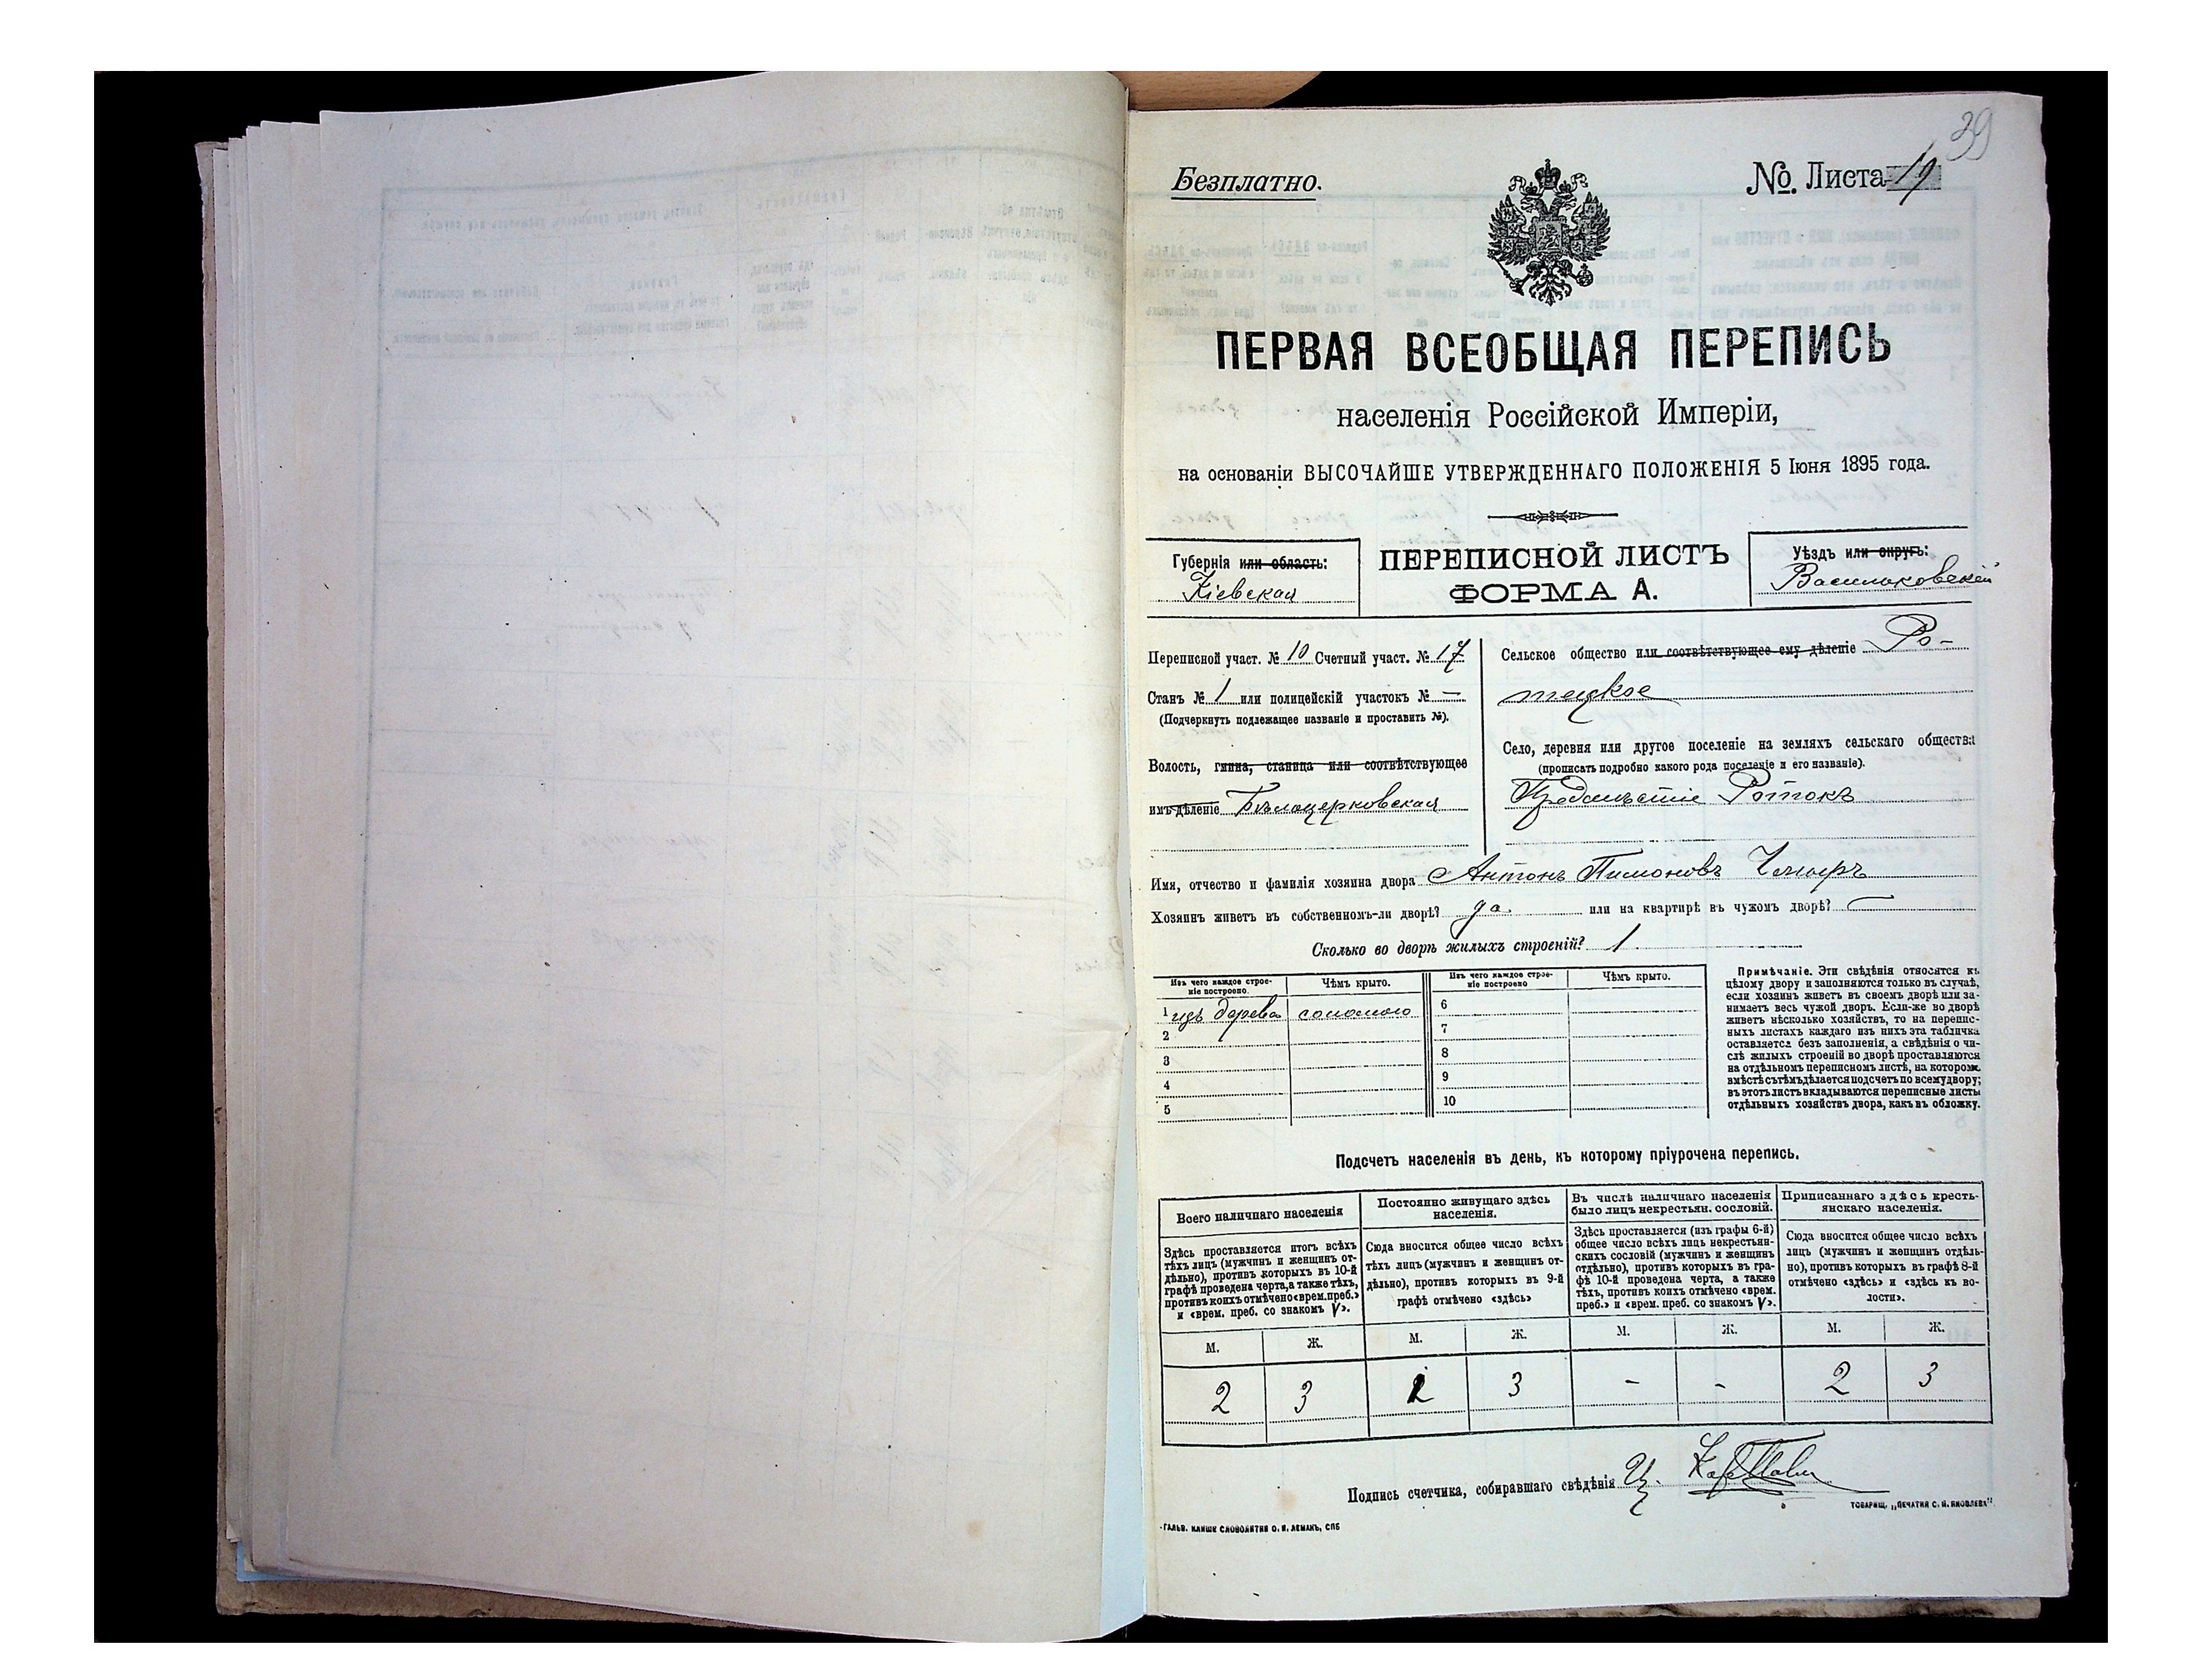 39
Безплатно.
№. Листа 19
ПЕРВАЯ ВСЕОБЩАЯ ПЕРЕПИСЬ
населенія Россійской Имперіи,
на основаніи ВЫСОЧАЙШЕ УТВЕРЖДЕННАГО ПОЛОЖЕНІЯ 5 Іюня 1895 года.
Губернія или область:
Кіевская
ПЕРЕПИСНОЙ ЛИСТЪ
ФОРМА А.
Уѣздъ или округъ:
Васильковскій
Переписной участ. № 10 Счетный участ. № 17
Станъ № 1 или полицейскій участокъ № —
(Подчеркнуть подлежащее названіе и проставить №).
Волость, гмина, станица или соотвѣтствующее
имъ дѣленіе Бѣлоцерковская
Сельское общество или соотвѣтствующее ему дѣленіе Ро-
тецкое
Село, деревня или другое поселеніе на земляхъ сельскаго общества
(прописать подробно какого рода поселеніе и его названіе).
Предмѣстіе Ротокъ
Имя, отчество и фамилія хозяина двора Антонъ Пимоновъ
Хозяинъ живетъ въ собственномъ-ли дворѣ? да. или на квартирѣ въ чужомъ дворѣ? —
Сколько во дворѣ жилыхъ строеній? 1.
Изъ чего каждое строе-
ніе построено.
Чѣмъ крыто.
Изъ чего каждое строе-
ніе построено
Чѣмъ крыто.
1 изъ дерева соломою
2
3
4
5
6
7
8
9
10
Примѣчаніе. Эти свѣдѣнія относятся къ
цѣлому двору и заполняются только въ случаѣ,
если хозяинъ живетъ въ своемъ дворѣ или за-
нимаетъ весь чужой дворъ. Если-же во дворѣ
живетъ нѣсколько хозяйствъ, то на перепис-
ныхъ листахъ каждаго изъ нихъ эта табличка
оставляется безъ заполненія, а свѣдѣнія о чи-
слѣ жилыхъ строеній во дворѣ проставляются
на отдѣльномъ переписномъ листѣ, на которомъ
вмѣстѣ съ тѣмъ дѣлается подсчетъ по всему двору;
въ этотъ листъ вкладываются переписные листы
отдѣльныхъ хозяйствъ двора, какъ въ обложку.
Подсчетъ населенія въ день, къ которому пріурочена перепись.
Всего наличнаго населенія
Здѣсь проставляется итогъ всѣхъ
тѣхъ лицъ (мужчинъ и женщинъ от-
дѣльно), противъ которыхъ въ 10-й
графѣ проведена черта, а также тѣхъ,
противъ коихъ отмѣчено «врем. преб.»
и «врем. преб. со знакомъ V».
Постоянно живущаго здѣсь
населенія.
Сюда вносится общее число всѣхъ
тѣхъ лицъ (мужчинъ и женщинъ от-
дѣльно), противъ которыхъ въ 9-й
графѣ отмѣчено «здѣсь»
Въ числѣ наличнаго населенія
было лицъ некрестьян. сословій.
Здѣсь проставляется (изъ графы 6-й)
общее число всѣхъ лицъ некрестьян-
скихъ сословій (мужчинъ и женщинъ
отдѣльно), противъ которыхъ въ гра-
фѣ 10-й проведена черта, а также
тѣхъ, противъ коихъ отмѣчено «врем.
преб.» и «врем. преб. со знакомъ V».
Приписаннаго здѣсь кресть-
янскаго населенія.
Сюда вносится общее число всѣхъ
лицъ (мужчинъ и женщинъ отдѣль-
но), противъ которыхъ въ графѣ 8-й
отмѣчено «здѣсь» и «здѣсь къ во-
лости».
М. Ж. М. Ж. М. Ж. М. Ж.
2 3 2 3 - - 2 3
Подпись счетчика, собиравшаго свѣдѣнія
ТОВАРИЩ. „ПЕЧАТНЯ С. П. ЯКОВЛЕВА"
ГАЛЬВ. КЛИШЕ СЛОВОЛИТНИ О. И. ЛЕМАНЪ, СПБ